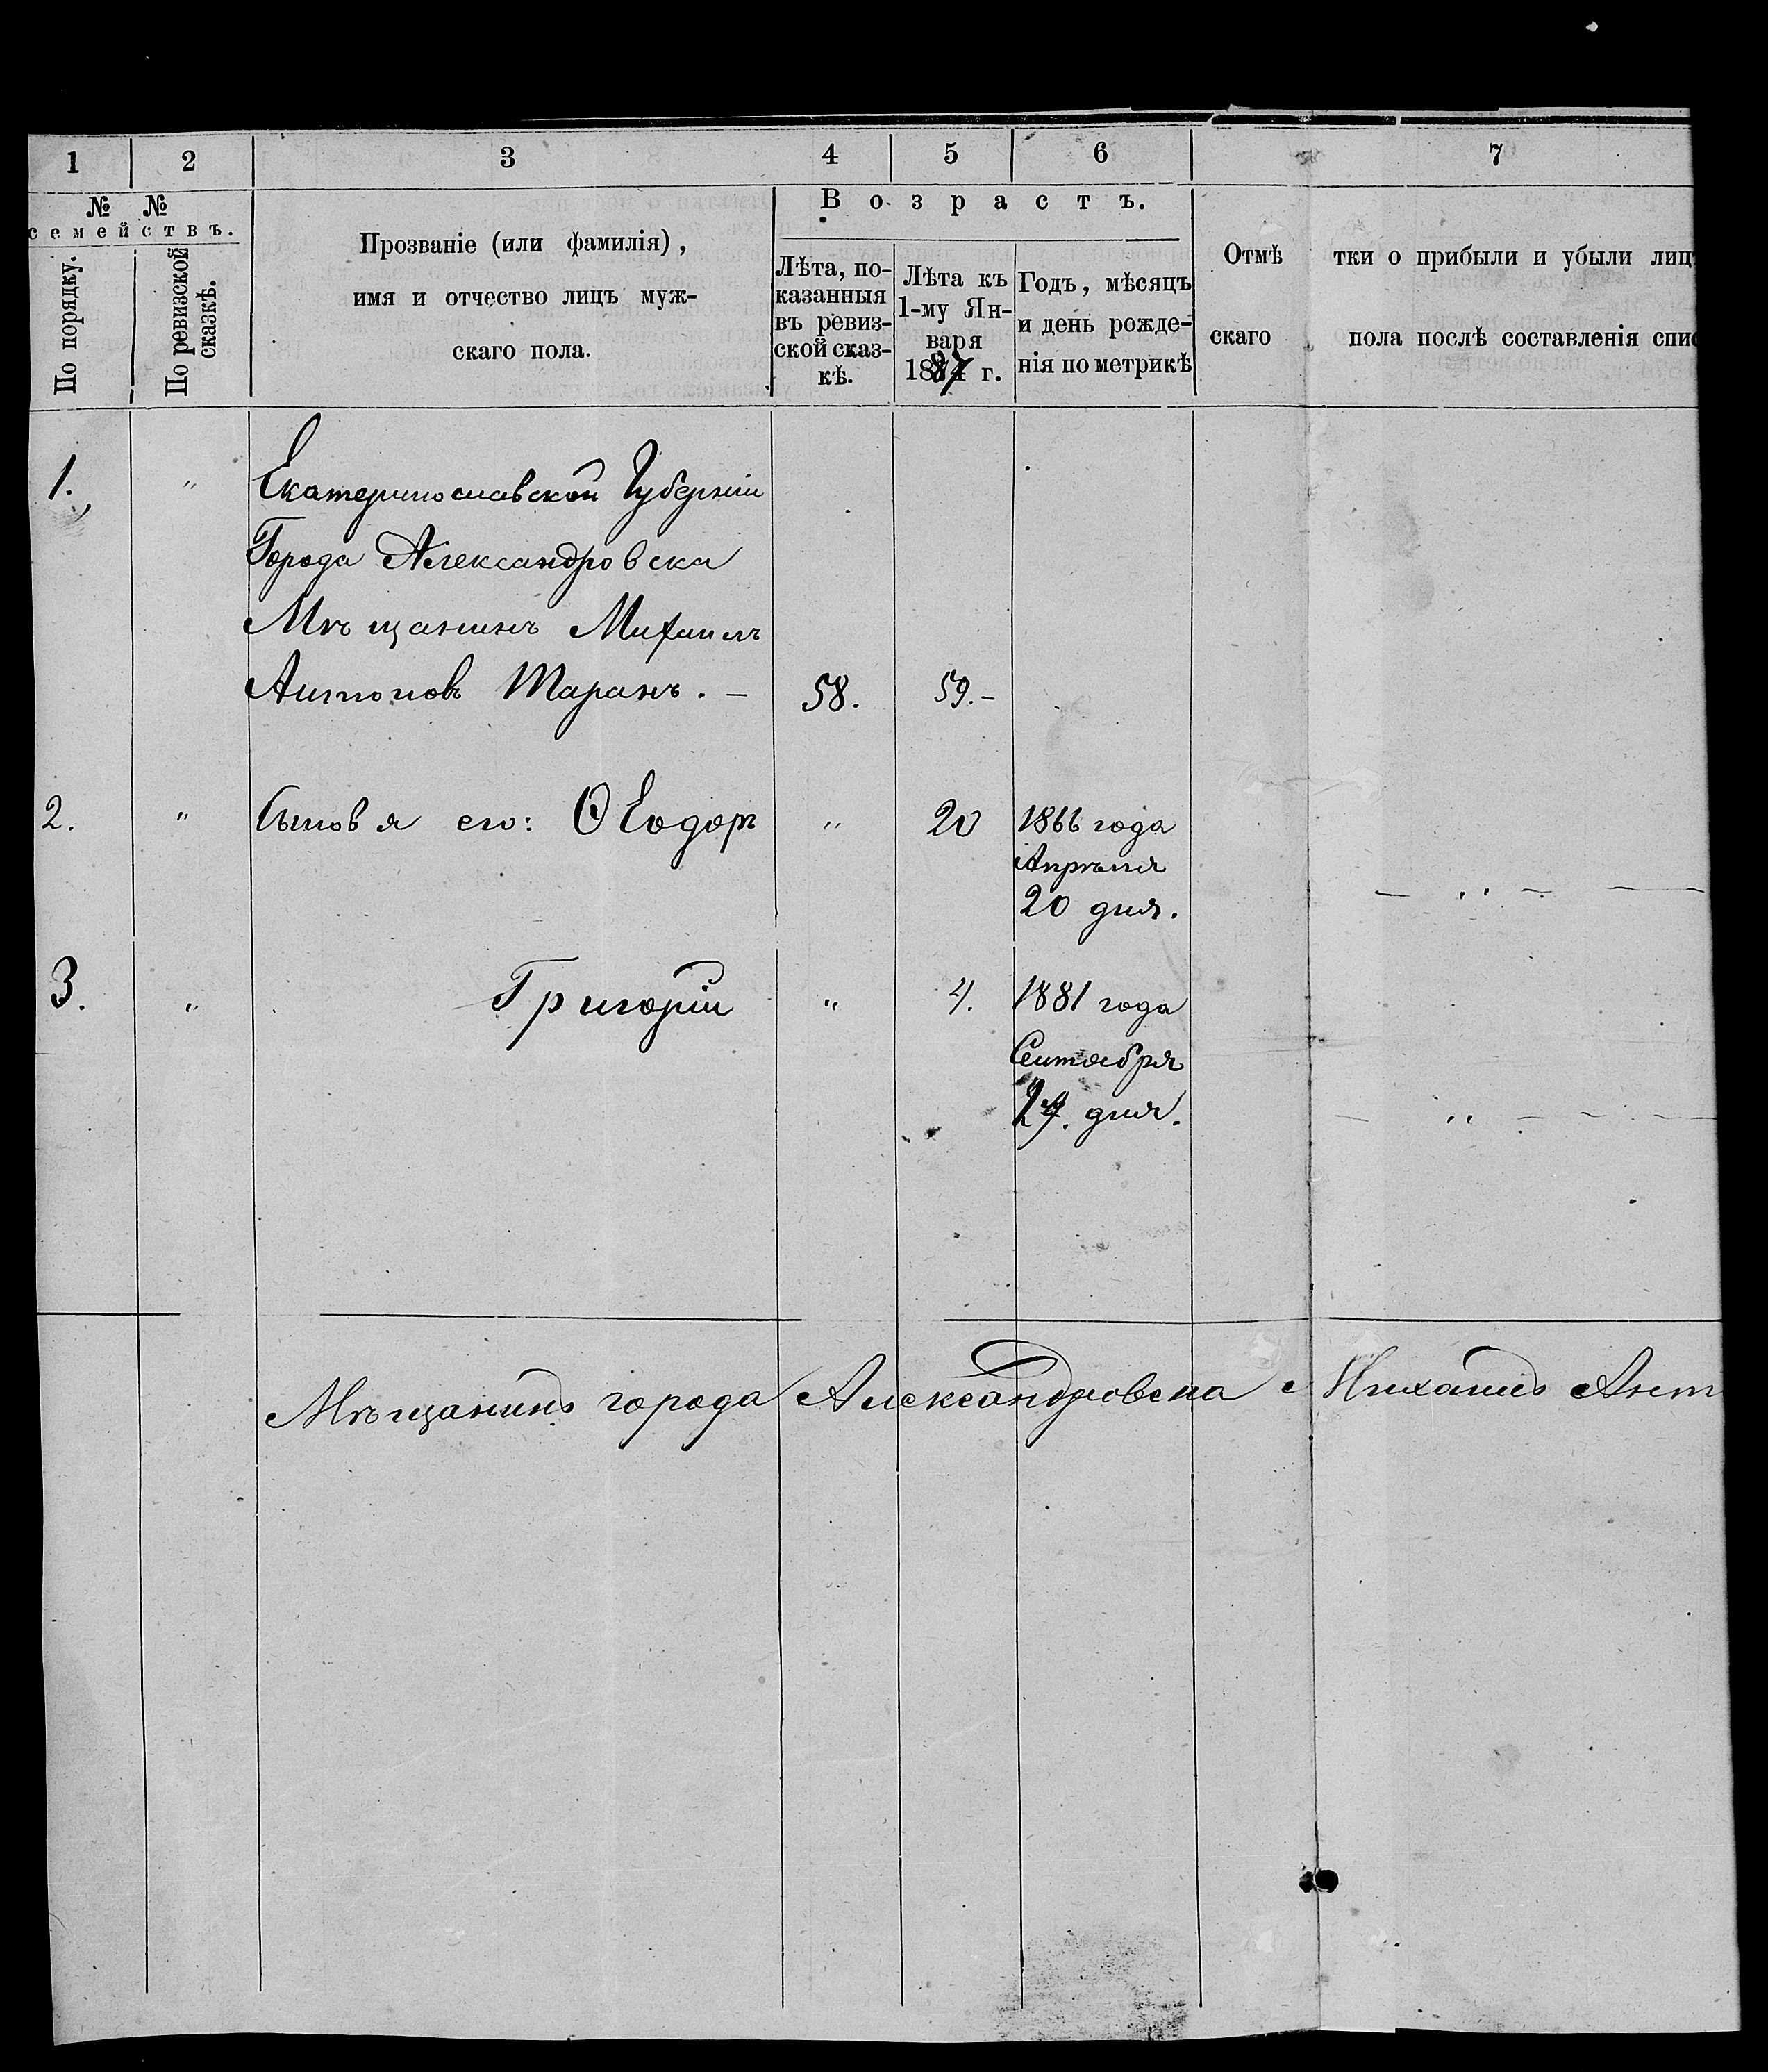 1 2 3 4 5 6 7
№ № семействъ.
По порядку.
По ревизской сказкѣ.
Прозваніе (или фамилія),
имя и отчество лицъ муж-
скаго пола.
Возрастъ.
Лѣта, по-
казанныя
въ ревиз-
ской сказ-
кѣ.
Лѣта къ
1-му Ян-
варя
1887 г.
Годъ, мѣсяцъ
и день рожде-
нія по метрикѣ
Отмѣ тки о прибыли и убыли лицъ
скаго пола послѣ составленія спис
1. "
Екатеринославской Губерніи
Города Александровска
Мѣщанинъ Михаилъ
Антоновъ Таранъ. – 58. 59.–
2. " Сыновья его: Ѳеодоръ " 20 1866 года
Апрѣля
20 дня. — " — —
3. " Григорій " 4. 1881 года
Сентября
дня. — " — —
Мѣщанинъ города Александровска Михаилъ Ант